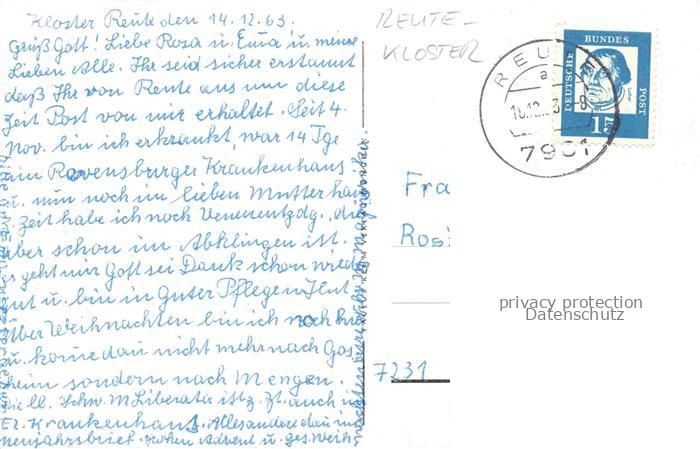 Kloster Reute den 14.12.63.
Grüß Gott! Liebe Rosa u. Ema u. meine
Lieben Alle. Ihr seid sicher erstaunt
daß Ihr von Reute aus um diese
Zeit Post von mir erhaltet. Seit 4.
Nov. bin ich erkrankt, war 14 Tge
im Ravensburger Krankenhaus
u. nun noch im lieben Mutterhaus
z. Zeit habe ich noch Venenentzdg, die
aber schon im Abklingen ist.
Es geht mir Gott sei Dank schon wieder
gut u. bin in guter Pflege u. Hut
Über Weihnachten bin ich noch hie
u. komme dan nicht mehr nach Gos
heim sondern nach Mengen.
Die ll. Schw. M Liberata ist z. Zt. auch im
Er. Krankenhaus. Alles andere dan im
neujahrsbrief. Frohen Advent u. ges. Weih
REUTE-
KLOSTER
REU
a
16.12. 3 - 8
7901
DEUTSCHE
BUNDES
POST
15
Fra
Rosi
7231
privacy protection
Datenschutz